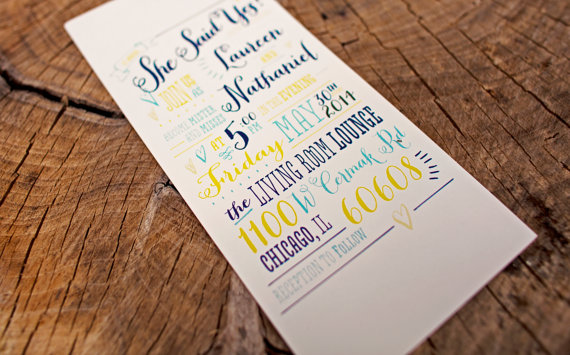 She Said Yes!
Laureen
and
Nathaniel
JOIN US AS
BECOME MISTER
AND MISSES
AT 5:00 PM IN THE EVENING
Friday MAY 30TH 2014
the LIVING ROOM LOUNGE
1100 W Cermak Rd
CHICAGO, IL 60608
RECEPTION to Follow